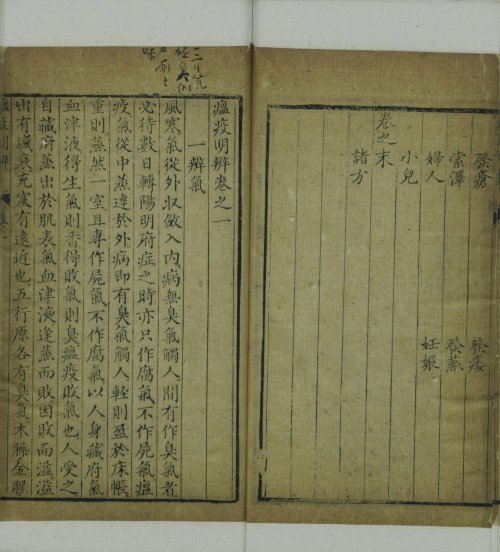 發瘡 發痿
索澤 發蒸
婦人 妊娠
小兒
卷之末
諸方
瘟疫明辨卷之一
一辨氣
風寒氣從外收斂入內病無臭氣觸人間有作臭氣者
必待數日轉陽明府症之時亦只作腐氣不作屍氣瘟
疫氣從中蒸達於外病即有臭氣觸人輕則盈於床帳
重則蒸然一室且專作屍氣不作腐氣以人身藏府氣
血津液得生氣則香得敗氣則臭瘟疫敗氣也人受之
自藏府蒸出於肌表氣血津液逢蒸而敗因敗而溢溢
出有盛衰充塞有遠近也五行原各有臭氣木臊金腥